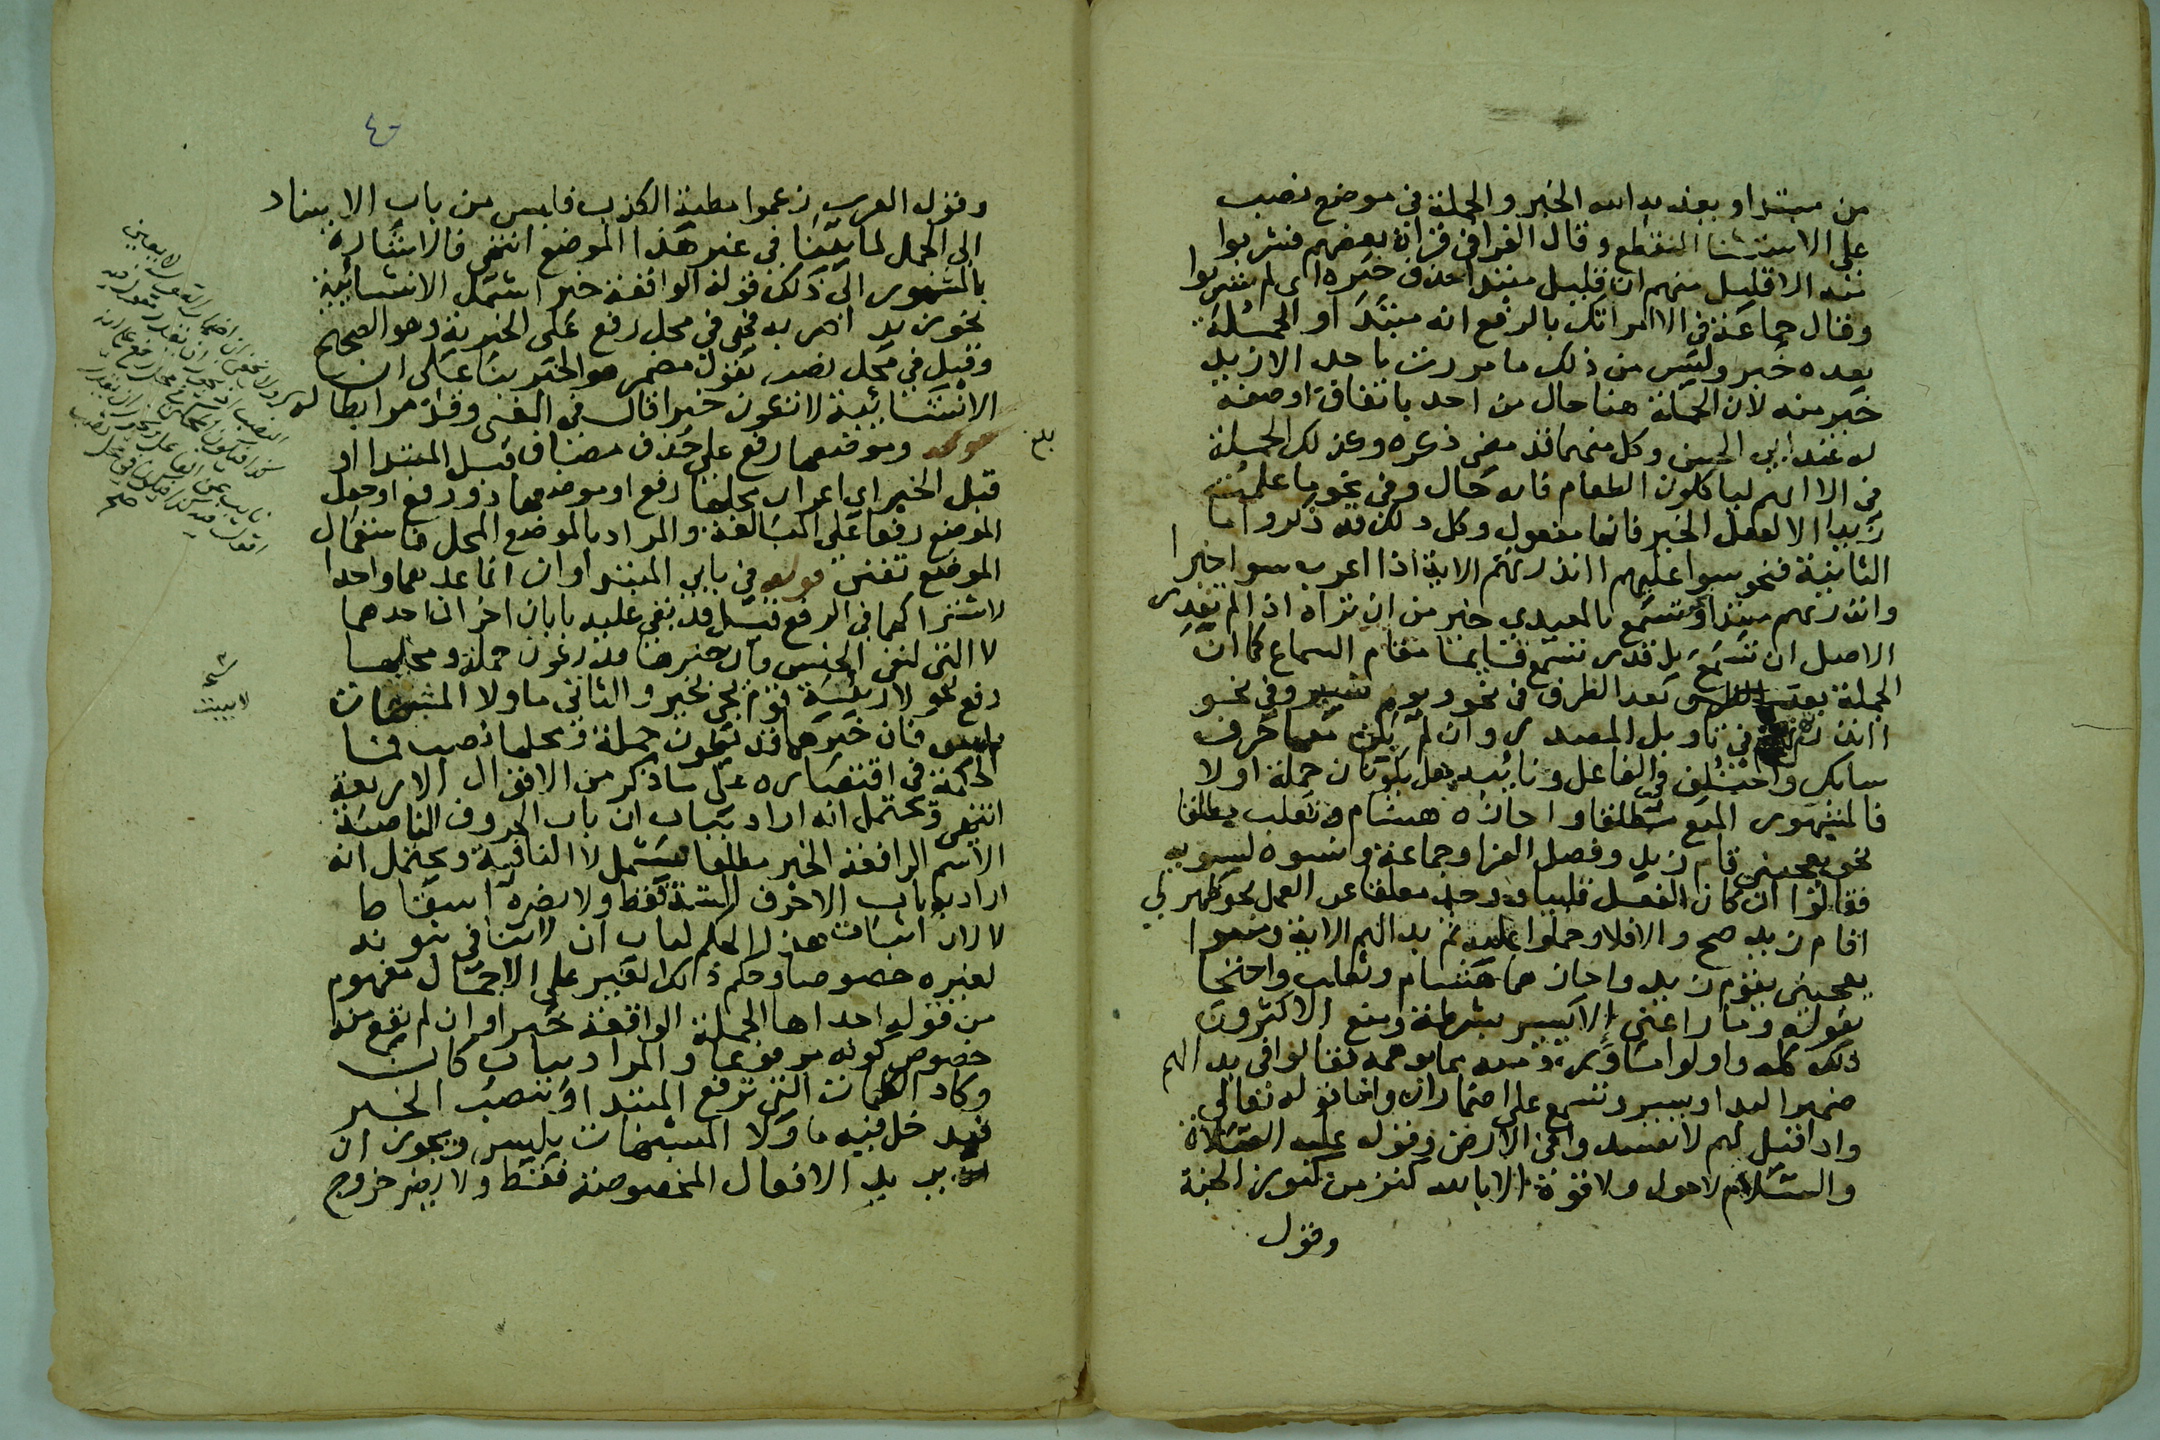 من مبتدا ويعذبه الله الخبر والجملة في موضع نصب
على الاستثنا المنقطع وقال الفرا في قراة بعضهم فشربوا
منه الا قليل منهم ان قليل مبتدا حذف خبره اى لم يشربوا
وقال جماعة في الا امراتك بالرفع انه مبتدا والجملة
بعده خبر وليس من ذلك ما مررت باحد الا زيد
خير منه لان الجملة هنا حال من احد باتفاق او صفة
له عند ابى الحسن وكل منهما قد مضى ذكره وكذلك الجملة
فى الا انهم لياكلون الطعام فانه حال وفى نحو ما علمت
زيدا الا يفعل الخير فانها مفعول وكل ذلك قد ذكروا اما
الثانية فنحو سوا عليهم اانذرتهم الاية اذا اعرب سوا خبرا
وانذرتهم مبتدا وتسمع بالمعيدي خير من ان تراه اذا لم تقدر
الاصل ان تسمع بل قدر تسمع قائما مقام السماع كما ان
الجملة بعد الظرف فى نحو ويوم نسير وفى نحو
اانذرتهم فى تاويل المصدر وان لم يكن معها حرف
سابك واختلف فى الفاعل ونائبه هل يكونان جملة او لا
فالمشهور المنع مطلقا واجازه هشام وثعلب مطلقا
نحو يعجبنى قام زيد وفصل الفرا وجماعة ونسبوه لسيبويه
فقالوا ان كان الفعل قلبيا ووجد معلقا عن العمل نحو ظهر لى
اقام زيد صح والا فلا وحملوا عليه ثم بدا لهم الاية ومنعوا
يعجبنى يقوم زيد واجازهما هشام وثعلب واحتجا
بقوله وما راعنى الا يسير بشرطة ومنع الاكثرون
ذلك كله واولوا ما ورد مما يوهمه فقالوا فى بدا لهم
ضمير البدا ويسير وتسمع على اضمار ان واما قوله تعالى
واذا قيل لهم لا تفسدوا فى الارض وقوله عليه الصلاة
والسلام لا حول ولا قوة الا بالله كنز من كنوز الجنة
وقول
٤٠
وقول العرب زعموا مطية الكذب فليس من باب الاسناد
الى الجمل لما بينا في غير هذا الموضع انتهى فالاشارة
بالمشهور الى ذلك قوله الواقعة خبرا شمل الانشائية
نحو زيد اضربه فهى فى محل رفع على الخبرية وهو الصحيح
وقيل فى محل نصب بقول مضمر هو الخبر بناء على ان
الانشائية لا تكون خبرا قال فى المغنى وقد مر ابطاله
قوله وموضعها رفع على حذف مضاف قبل المبتدا او
قبل الخبر اى اعراب محلها رفع او موضعها ذو رفع او جعل
الموضع رفعا على المبالغة والمراد بالموضع المحل فاستعمال
الموضع تفنن قوله فى بابى المبتدا وان انما عدهما واحدا
لاشتراكهما فى الرفع قيل قد بقى عليه بابان اخران احدهما
لا التى لنفى الجنس فان خبرها قد يكون جملة ومحلها
رفع نحو لا رئيسة قوم تجى بخير والثانى ما ولا المشبهتان
بليس فان خبرهما قد يكون جملة ومحلها نصب فما
الحكمة فى اقتصاره على ما ذكر من الاقوال الاربعة
انتهى ويحتمل انه اراد بباب ان باب الحروف الناصبة
الاسم الرافعة الخبر مطلقا فيشمل لا النافية ويحتمل انه
اراد به باب الاحرف الستة فقط ولا يضره اسقاط
لا لان اثبات هذا الحكم لباب ان لا ينافى ثبوته
لغيره خصوصا وحكم ذلك الغير على الاجمال مفهوم
من قوله احداها الجملة الواقعة خبرا وان لم تقع منه
خصوص كونه مرفوعا والمراد بباب كان
وكاد الكلمات التى ترفع المبتدا وتنصب الخبر
فيدخل فيه ما ولا المشبهتان بليس ويجوز ان
يريد الافعال المخصوصة فقط ولا يضر خروج
بلغ